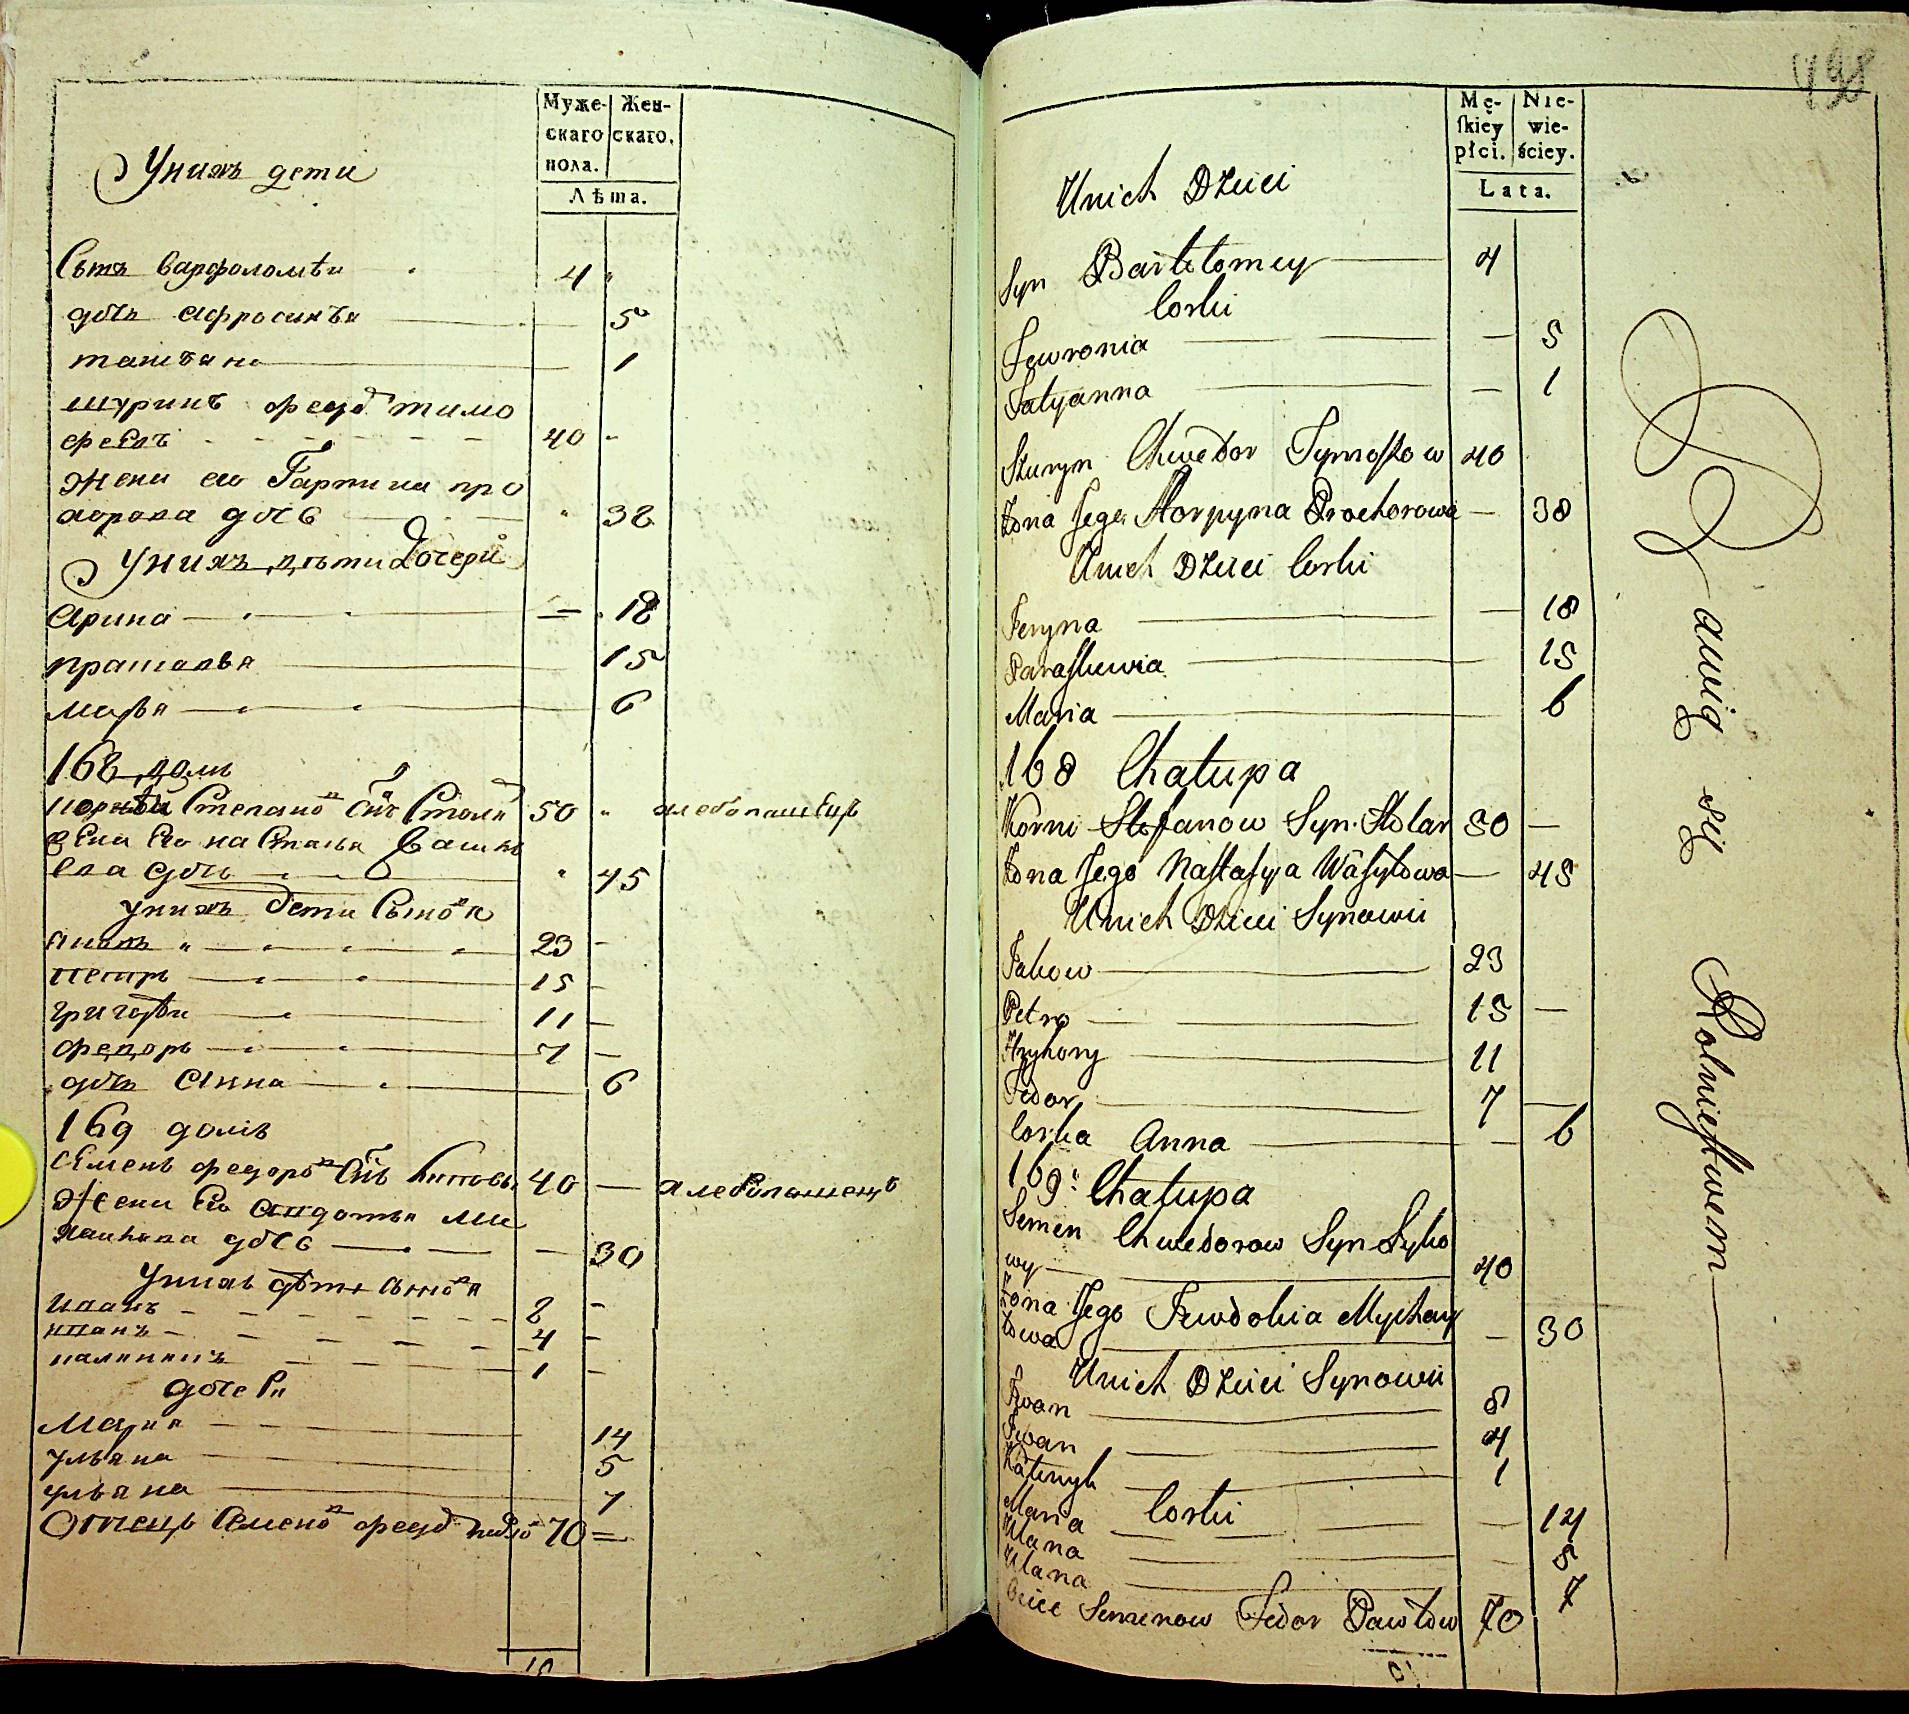 Муже-
скаго
пола.
Жен-
скаго.
Лѣта.
Унихъ дети
Сынъ Варфоломѣи 4
дочь Афросинѣя 5
татьяна 1
шуринъ федо тимо
феевъ 40 -
Жена его Гарпина про
хорова дочь 38
Унихъ дѣти Дочери
Арина — 18
прасковья 15
марья 6
168 домъ
Корнѣй Степановъ Сынъ Столя 50 хлебопашецъ
Жена Его настасья Васил
ева дочь 45
унихъ дети Сыновя
яковъ 23 -
петръ 15 -
григорѣи 11 —
федоръ 7 —
дочь Анна 6
169 домъ
Семенъ федоровъ Сынъ 40 — хлебопашецъ
Жена Его Авдотья Ми
хайлова дочь — 30
унихъ дѣти Сыновя
иванъ 8 -
иванъ 4 -
1 -
дочери
Мария 14
ульяна 5
ульяна 7
Отецъ Семеновъ федо павло 70 =
10
498
Mę-
skiey
płci.
Nie-
wie-
ściey.
Lata.
Unich Dzieci
Syn Bartłomiey — 4
Corki
Fewronia — 5
Tatyanna — 1
Szuryn Chwedor Tymoszow 40
Żona Jego Horpyna Prochorowa — 38
Unich Dzieci Corki
Jeryna — 18
Paraskewia 15
Maria 6
168 Chałupa
Korni Stefanow Syn Stolar 50 —
Żona Jego Nastasyia Wasylowa — 45
Unich Dzieci Synowii
Jakow 23
Petro 15 —
Hryhory 11
Fedor 7 —
Corka Anna — 6
169: Chałupa
Semen Chwedorow Syn Łyko
wy 40
Żona Jego Jewdokia Mychay
łowa — 30
Unich Dzieci Synowii
Iwan 8
Iwan 4
1
Corki
Maria — 14
Ulana — 5
Ulana 7
Ociec Semenow Fedor Pawłow 70
Bawią się Rolnictwem